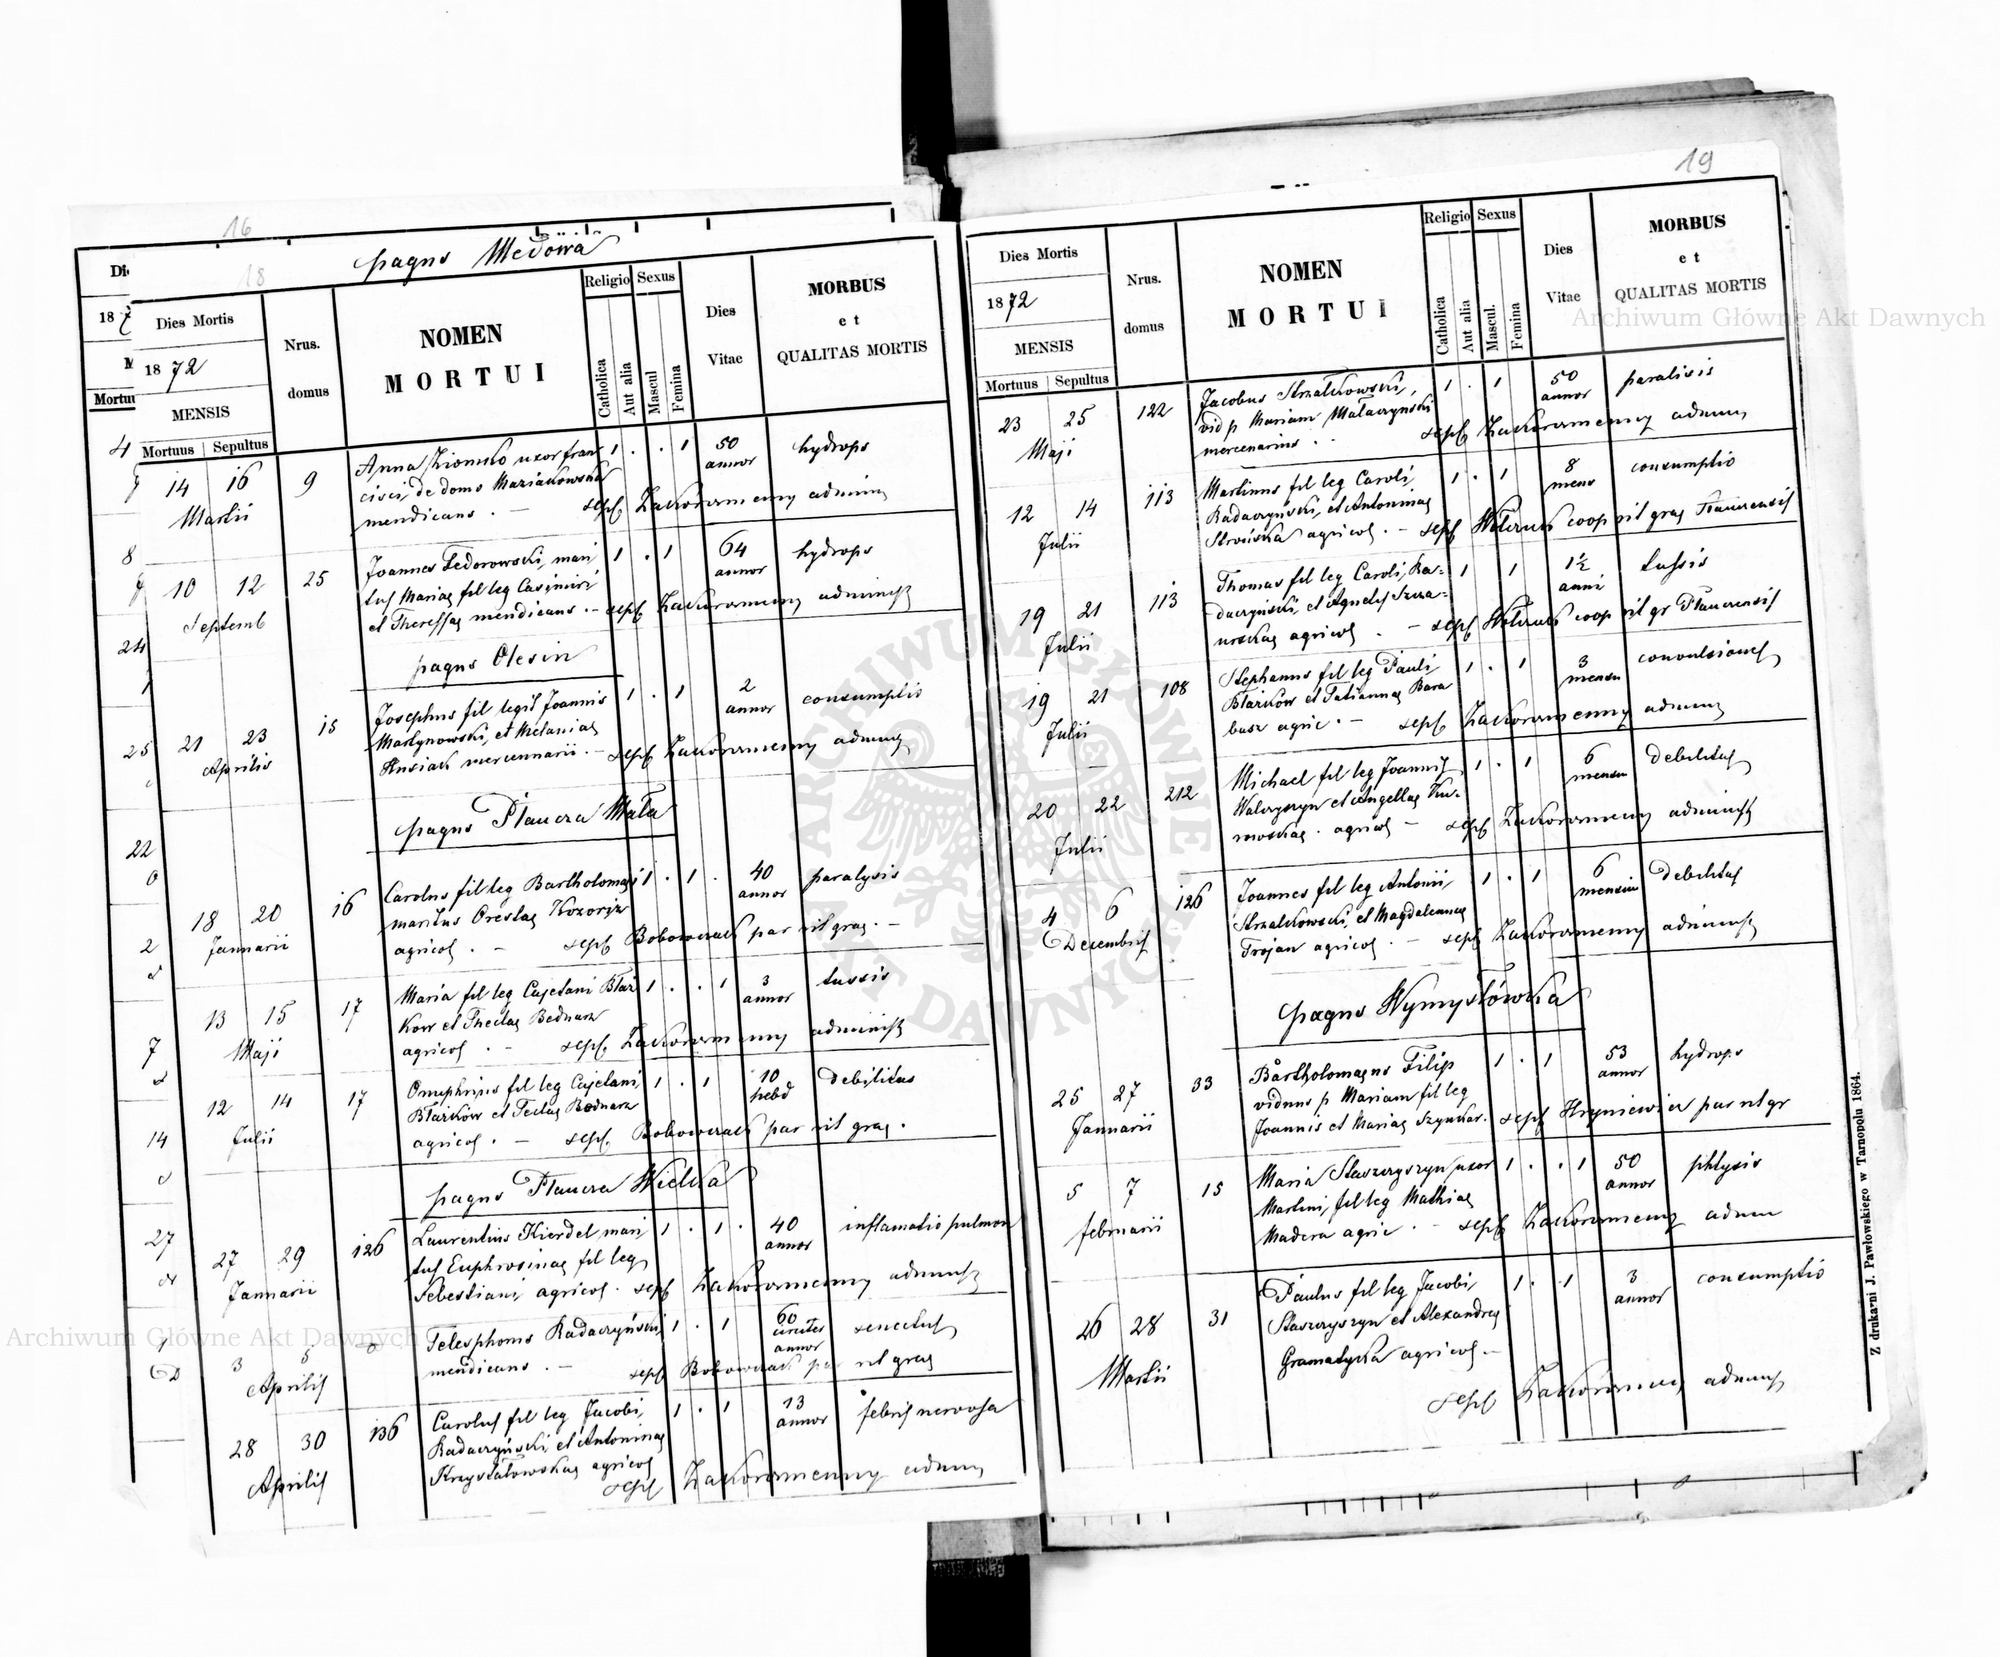 16
18
pagus Medowa
Dies Mortis
1872
MENSIS
Mortuus | Sepultus
Nrus. domus
NOMEN
MORTUI
Religio
Catholica
Aut alia
Sexus
Mascul
Femina
Dies Vitae
MORBUS
et
QUALITAS MORTIS
14 16 9 Anna uxor fran 1 . . 1 50 hydrops
Martii cisci, de domo Mariakowska annor
mendicans . — sepl Zakorzmenny admin
10 12 25 Joannes Fedorowski, mari 1 . 1 64 hydrops
Septemb tus Mariae fil leg Casimiri annor
et Theressae mendicans . — sepl Zakorzmenny administ
pagus Olesin
21 23 15 Josephus fil legit Joannis 1 . 1 2 consumptio
Aprilis Martynowski, et Melaniae annor
Husiak mercennarii . — sepl Zakorzmenny adminst
pagus Płaucza Mała
18 20 16 Carolus fil leg Bartholomaei 1 . 1 . 40 paralysis
Januarii maritus Orestae Kozoriz annor
agricol . — sepl Bobowczak par rit graec . —
13 15 17 Maria fil leg Cajetani Błaż 1 . . 1 3 tussis
Maji kow et Theclae Bednarz annor
agricol . — sepl. Zakorzmenny administ
12 14 17 Onuphrius fil leg Cajetani 1 . 1 10 debilitas
Julii Błazków et Teclae Bednarz hebd
agricol . — sepl. Bobowczak par rit graec .
pagus Płaucza Wielka
27 29 126 Laurentius Kierdel mari 1 . 1 . 40 inflamatio pulmon
Januarii tus Euphrosinae fil leg annor
Sebestiani, agricol . sepl Zakorzmenny adminst
3 5 Telesphorus Radaczyński, 1 . 1 60 senectus
Aprilis mendicans . — circiter annor
sepl Bobowczak par rit graec
28 30 136 Carolus fil leg Jacobi, 1 . 1 13 febris nervosa
Aprilis Radaczyński, et Antoninae annor
Krzyształowskae agricol
sepl Zakorzmenny admin
19
Dies Mortis
1872
MENSIS
Mortuus | Sepultus
Nrus. domus
NOMEN
MORTUI
Religio
Catholica
Aut alia
Sexus
Mascul.
Femina
Dies Vitae
MORBUS
et
QUALITAS MORTIS
23 25 122 Jacobus Strzałkowski, 1 . 1 50 paralisis
Maji vid p Mariam Małaczyński annor
mercenarius . . sepl Zakorzmenny admin
12 14 113 Martinus fil leg Caroli, 1 . 1 8 consumptio
Julii Radaczyński, et Antoninae mens
agricol . — sepl coop rit graec Płaucensis
19 21 113 Thomas fil leg Caroli, Ra= 1 1 1½ tussis
Julii daczyński, et Agnetis Szcza= anni
agricol . — sepl coop rit gr Płaucensis
19 21 108 Stephanus fil leg Pauli 1 . 1 3 convulsiones
Julii Błazków et Tatiannae Bara mensu
basz agric . — sepl Zakorzmenny admin
20 22 212 Michael fil leg Joannis 1 . 1 6 debilitas
Julii Walczyszyn et Angellae mensu
agricol — sepl Zakorzmenny administ
4 6 126 Joannes fil leg Antonii, 1 . 1 6 debilitas
Decembris Strzałkowski, et Magdalennae mensiu
Trojan agricol . — sepl Zakorzmenny administ
pagus Wymysłówka
25 27 33 Bartholomaeus Filip 1 . 1 53 hydrops
Januarii viduus p Mariam fil leg annor
Joannis et Mariae Szynkar . sepl Hryniewicz par rit gr
5 7 15 Maria Staszczyszyn uxor 1 . . 1 50 phtysis
februarii Martini, fil leg Mathiae annor
Madera agric . — sepl Zakorzmenny admin
26 28 31 Paulus fil leg Jacobi, 1 . 1 3 consumptio
Martii Staszczyszyn et Alexandrae annor
Gramatycka agricol . —
sepl Zakorzmenny adminst
Z drukarni J. Pawłowskiego w Tarnopolu 1864.
Archiwum Główne Akt Dawnych
Archiwum Główne Akt Dawnych
ARCHIWUM GŁÓWNE AKT DAWNYCH